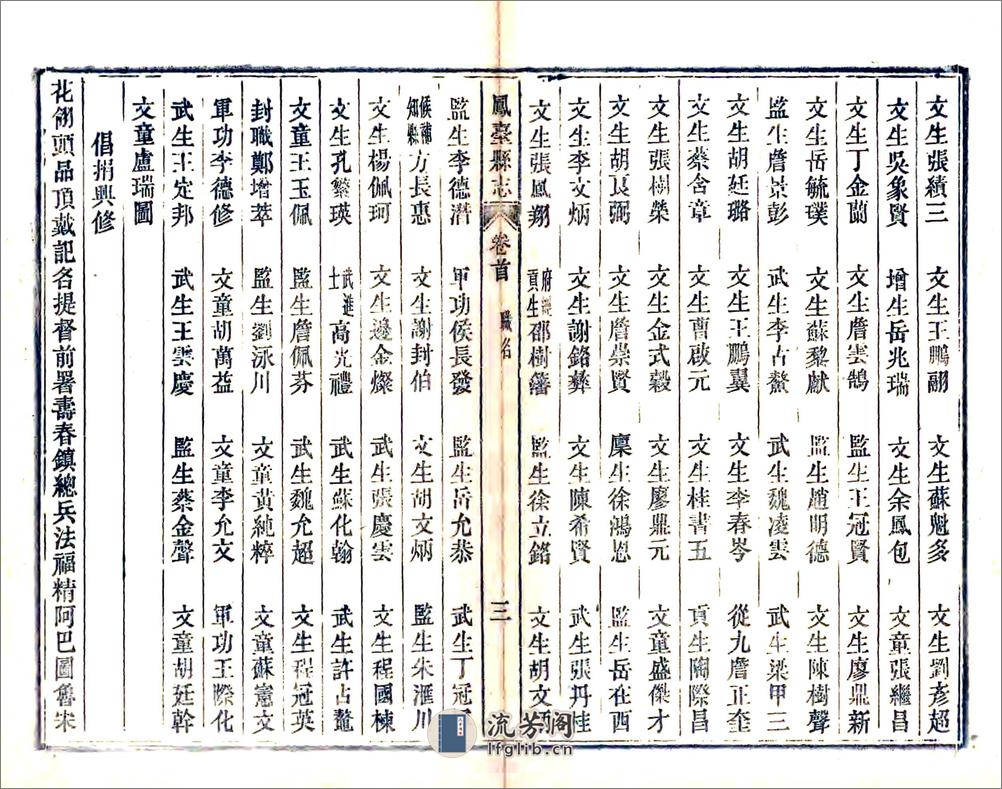 文生張績三　文生王鵬翮　文生蘇魁多　文生劉彥超
文生吳象賢　增生岳兆瑞　文生余鳳包　文童張繼昌
文生丁金蘭　文生詹雲鵠　監生王冠賢　文生廖鼎新
文生岳毓璞　文生蘇黎獻　監生趙明德　文生陳樹聲
監生詹景彭　武生李占鰲　武生魏凌雲　武生梁甲三
文生胡廷璐　文生王鵬翼　文生李春岑　從九詹正奎
文生蔡含章　文生曹啟元　文生桂書五　貢生陶際昌
文生張樹榮　文生金式穀　文生廖鼎元　文童盛傑才
文生胡良弼　文生詹崇賢　廩生徐鴻恩　監生岳在西
文生李文炳　文生謝銘彝　文生陳希賢　武生張丹桂
文生張鳳翔　府學貢生邵樹籓　監生徐立銘　文生胡文
鳳臺縣志　卷首　職名　三
監生李德潛　軍功侯長發　監生岳允恭　武生丁冠
候補知縣方長惠　文生謝封伯　文生胡文炳　監生朱滙川
文生楊佩珂　文生邊金燦　武生張慶雲　文生程國棟
文生孔繁瑛　武進士高光禮　武生蘇化翰　武生許占鼇
文童王玉佩　監生詹佩芬　武生魏允超　文生程冠英
封職鄭增萃　監生劉泳川　文童黃純粹　文童蘇憲文
軍功李德修　文童胡萬益　文童李允文　軍功王際化
武生王定邦　武生王雲慶　監生蔡金聲　文童胡廷幹
文童盧瑞圖
倡捐興修
花翎頭品頂戴記名提督前署壽春鎮總兵法福精阿巴圖魯宋
流芳閣
lfglib.cn